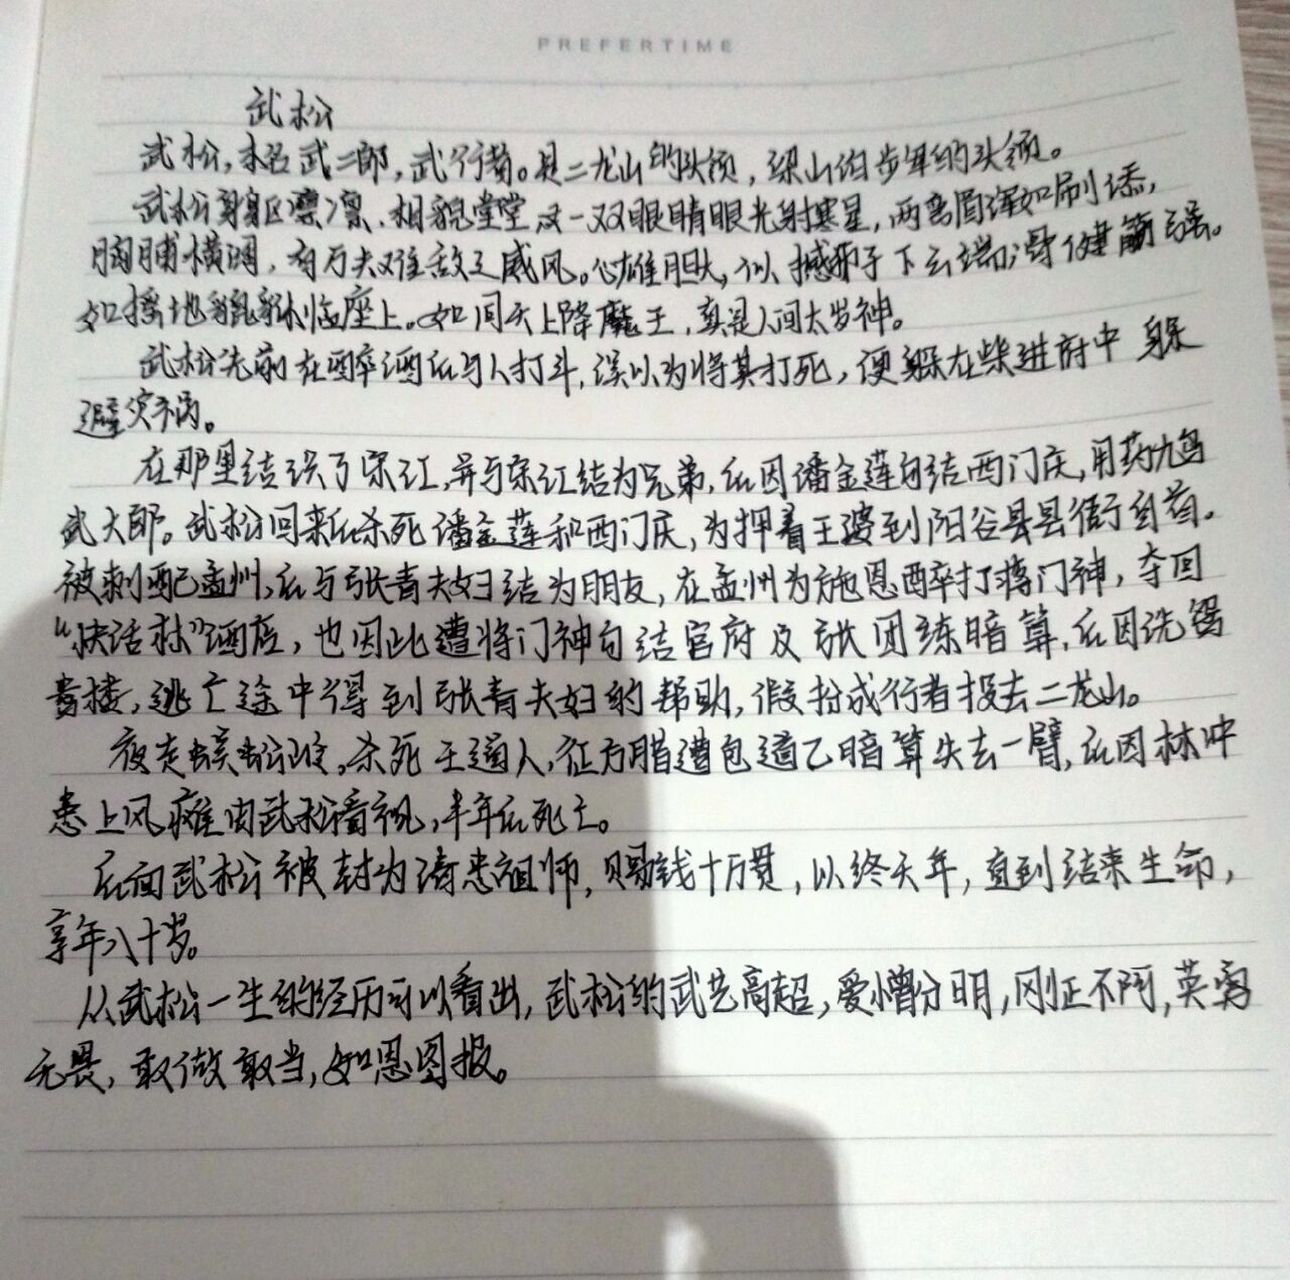 PREFERTIME
武松
武松,本名武二郎,武行者。是二龙山的头领,梁山泊步军的头领。
武松身躯凛凛、相貌堂堂 双一双眼睛眼光射寒星,两弯眉浑如刷漆,
胸脯横阔,有万夫难敌之威风。心雄胆大,似撼狮子下云端;骨健筋强。
如摇地貔貅临座上。如同天上降魔王,真是人间太岁神。
武松先前在醉酒后与人打斗,误以为将其打死,便躲在柴进府中 躲
避灾祸。
在那里结识了宋江,并与宋江结为兄弟,后因潘金莲勾结西门庆,用药
武大郎。武松回来后杀死潘金莲和西门庆,为押着王婆到阳谷县县衙自首。
被刺配孟州,后与张青夫妇结为朋友,在孟州为施恩醉打蒋门神,夺回
“快活林”酒店,也因此遭将门神勾结官府及张团练暗算,后因洗鸳
楼,逃亡途中得到张青夫妇的帮助,假扮成行者投去二龙山。
夜走蜈蚣岭,杀死王道人,征方腊遭包道乙暗算失去一臂,后因林冲
患上风瘫由武松看视,半年后死亡。
后面武松被封为清忠祖师,赐钱十万贯,以终天年,直到结束生命,
享年八十岁。
从武松一生的经历可以看出,武松的武艺高超,爱憎分明,刚正不阿,英勇
无畏,敢做敢当,如恩图报。